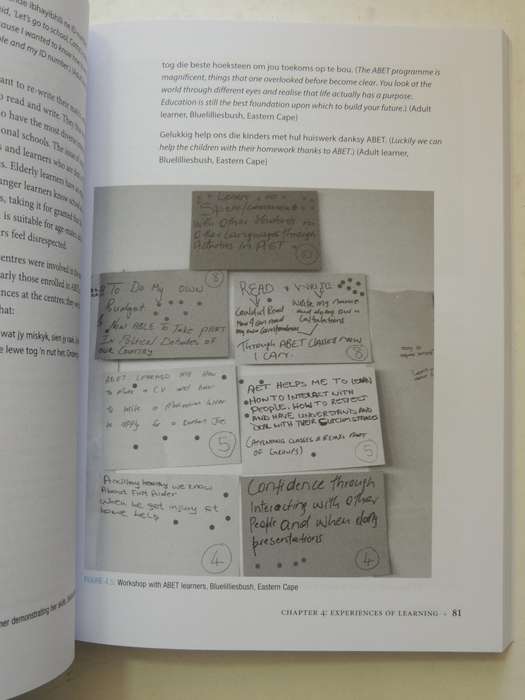 id, 'Let's go to school. Com
ause I wanted to know how
le and my ID number.' (Adult
ant to re-write their matric
o read and write. They
o have the most diverse
onal schools. The issue of
s and learners who are
s. Elderly learners have
nger learners know
s, taking it for granted that
is suitable for age-mates
rs feel disrespected.
centres were involved in
arly those enrolled in ABET
nces at the centres they
hat:
wat jy miskyk, sien jy raak
e lewe tog 'n nut het.
ner demonstrating her skills,
tog die beste hoeksteen om jou toekoms op te bou. (The ABET programme is
magnificent, things that one overlooked before become clear. You look at the
world through different eyes and realise that life actually has a purpose.
Education is still the best foundation upon which to build your future.) (Adult
learner, Bluelilliesbush, Eastern Cape)
Gelukkig help ons die kinders met hul huiswerk danksy ABET. (Luckily we can
help the children with their homework thanks to ABET.) (Adult learner,
Bluelilliesbush, Eastern Cape)
Learn
Speak/communicate
With Other Students in
Other Languages through
Activities in AET
To Do My OWN
Budget
Now ABLE To Take PART
In Political Debates of
our Country
8
READ + Write
Could not Read
Now I can read
my own Correspondence
Write my name
and doing own
Calculations
Through ABET Classes now
I CAN.
8
ABET LEARNED my How
to make a CV and how
to write a Motivation letter
to apply for a Certain Job
5
AET HELPS ME TO LEARN
HOW TO INTERACT WITH
PEOPLE, HOW TO RESPECT
AND HAVE UNDERSTANDING AND
DEAL WITH THEIR CIRCUMSTANCES
(ATTENDING CLASSES & BEING PART
OF GROUPS)
5
Ancillary healthy we know
About First Aider
When he get injury at
home help
4
Confidence through
Interacting with other
People and when doing
presentations
4
FIGURE 4.5: Workshop with ABET learners, Bluelilliesbush, Eastern Cape
CHAPTER 4: EXPERIENCES OF LEARNING • 81